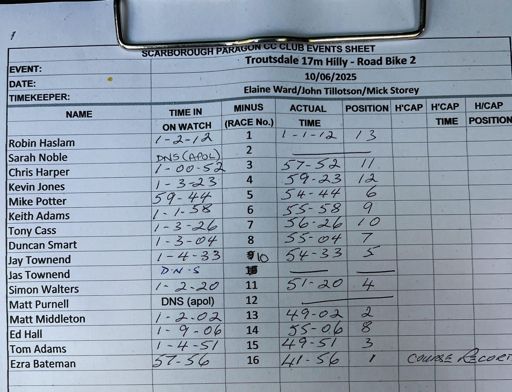 SCARBOROUGH PARAGON CC CLUB EVENTS SHEET
EVENT: Troutsdale 17m Hilly - Road Bike 2
DATE: 10/06/2025
TIMEKEEPER: Elaine Ward/John Tillotson/Mick Storey
NAME TIME IN ON WATCH MINUS (RACE No.) ACTUAL TIME POSITION H'CAP H'CAP TIME H/CAP POSITION
Robin Haslam 1-2-12 1 1-1-12 13
Sarah Noble DNS (APOL) 2
Chris Harper 1-00-52 3 57-52 11
Kevin Jones 1-3-23 4 59-23 12
Mike Potter 59-44 5 54-44 6
Keith Adams 1-1-58 6 55-58 9
Tony Cass 1-3-26 7 56-26 10
Duncan Smart 1-3-04 8 55-04 7
Jay Townend 1-4-33 10 54-33 5
Jas Townend D-N-S
Simon Walters 1-2-20 11 51-20 4
Matt Purnell DNS (apol) 12
Matt Middleton 1-2-02 13 49-02 2
Ed Hall 1-9-06 14 55-06 8
Tom Adams 1-4-51 15 49-51 3
Ezra Bateman 57-56 16 41-56 1 COURSE RECORD